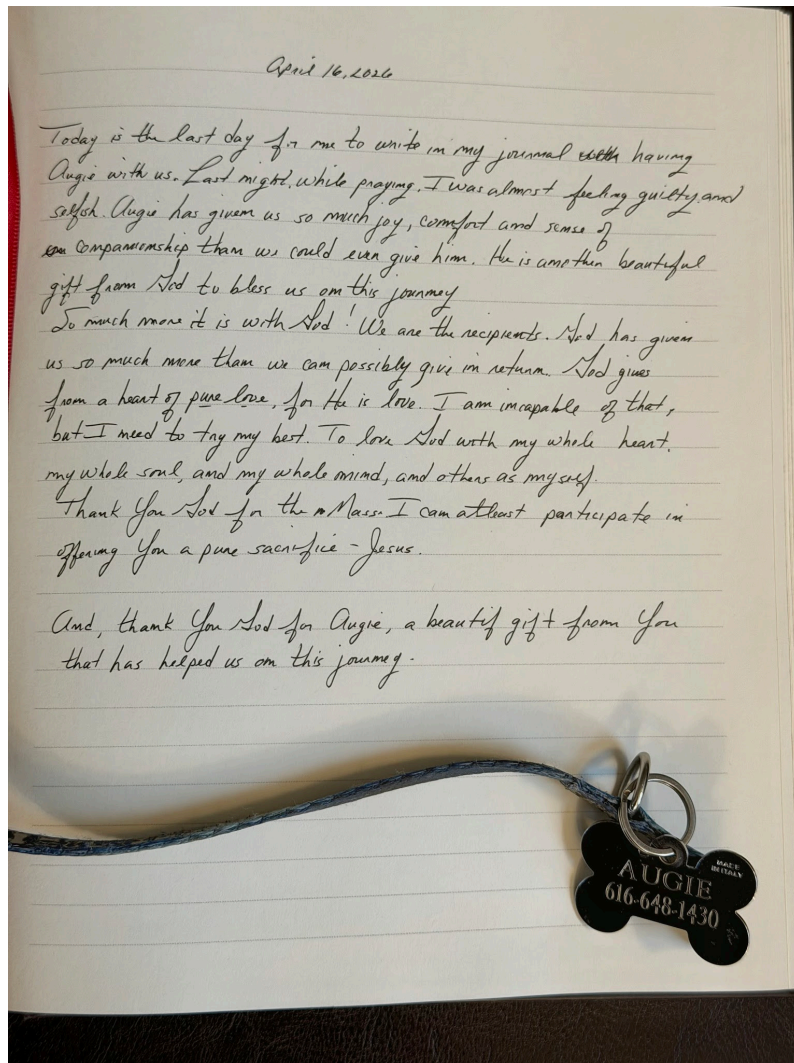 April 16, 2026
Today is the last day for me to write in my journal with having
Augie with us. Last night, while praying, I was almost feeling guilty and
selfish. Augie has given us so much joy, comfort and sense of
companionship than we could even give him. He is another beautiful
gift from God to bless us on this journey
So much more it is with God! We are the recipients. God has given
us so much more than we can possibly give in return. God gives
from a heart of pure love, for He is love. I am incapable of that,
but I need to try my best. To love God with my whole heart,
my whole soul, and my whole mind, and others as myself.
Thank You God for the Mass. I can atleast participate in
offering You a pure sacrifice - Jesus.
And, thank You God for Augie, a beautif gift from You
that has helped us on this journey.
MADE
IN ITALY
AUGIE
616-648-1430